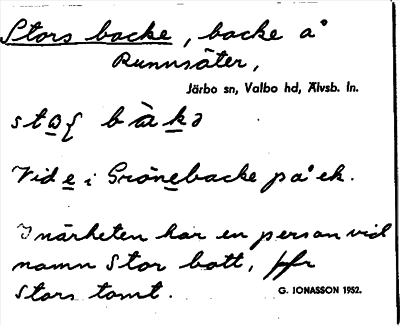 Stors backe, backe å
Runnsäter,
Järbo sn, Valbo hd, Älvsb. ln.
bàkə
Vid e i Grönebacke på ek.
I närheten har en person vid
namn Stor bott, jfr
Stors tomt.
G. IONASSON 1952.